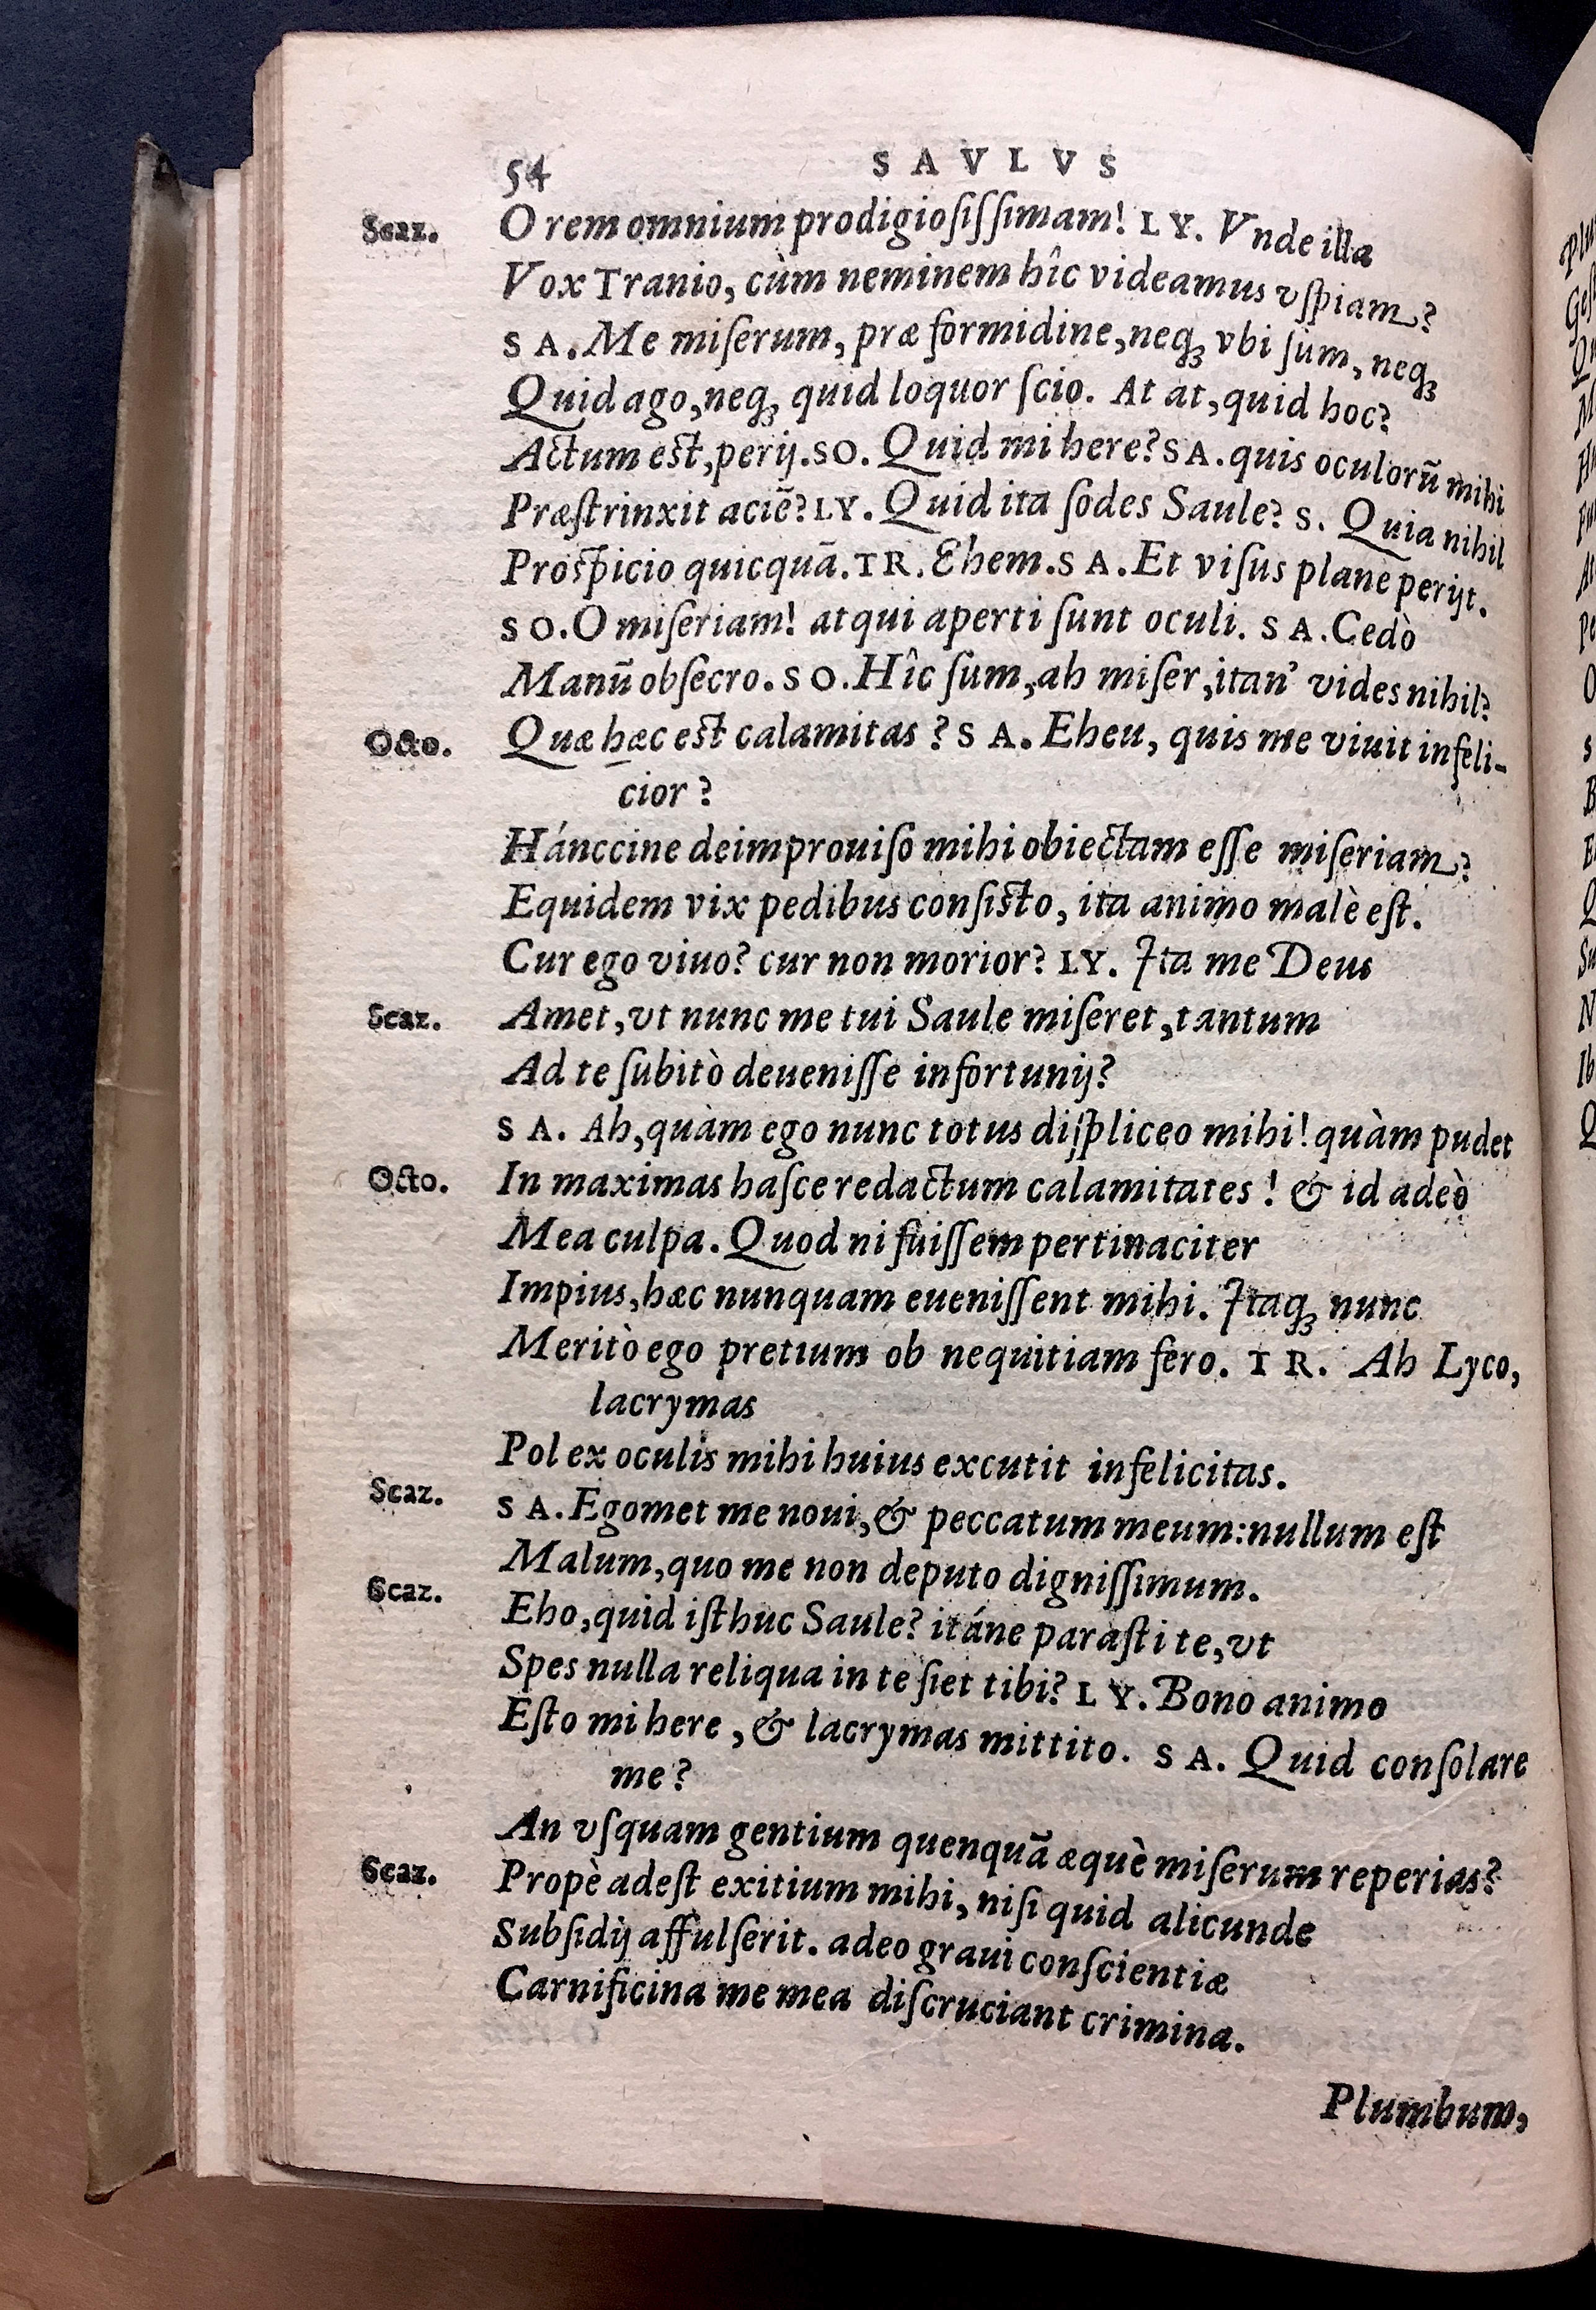 54 SAVLVS
Scaz. O rem omnium prodigiosißimam! LY. Vnde illa
Vox Tranio, cùm neminem hîc videamus vſpiam?
SA. Me miſerum, præ formidine, neqꝫ vbi ſum, neqꝫ
Quid ago, neqꝫ quid loquor ſcio. At at, quid hoc?
Actum eſt, perij. SO. Quid mi here? SA. quis oculorũ mihi
Præſtrinxit aciẽ? LY. Quid ita ſodes Saule? S. Quia nihil
Proſpicio quicquã. TR. Ehem. SA. Et viſus planè perijt.
SO. O miſeriam! atqui aperti ſunt oculi. SA. Cedò
Manũ obſecro. SO. Hîc ſum, ah miſer, itan' vides nihil?
Octo. Quæ hæc eſt calamitas? SA. Eheu, quis me viuit infeli-
cior?
Hánccine deimprouiſo mihi obiectam eſſe miſeriam?
Equidem vix pedibus conſiſto, ita animo malè eſt.
Cur ego viuo? cur non morior? LY. Ita me Deus
Scaz. Amet, vt nunc me tui Saule miſeret, tantum
Ad te ſubitò deueniſſe infortunij?
SA. Ah, quàm ego nunc totus diſpliceo mihi! quàm pudet
Octo. In maximas haſce redactum calamitates! & id adeò
Mea culpa. Quod ni fuiſſem pertinaciter
Impius, hæc nunquam eueniſſent mihi. Itaqꝫ nunc
Meritò ego pretium ob nequitiam fero. TR. Ah Lyco,
lacrymas
Pol ex oculis mihi huius excutit infelicitas.
Scaz. SA. Egomet me noui, & peccatum meum: nullum eſt
Malum, quo me non deputo digniſſimum.
Scaz. Eho, quid iſthuc Saule? itáne paraſti te, vt
Spes nulla reliqua in te ſiet tibi? LY. Bono animo
Eſto mi here, & lacrymas mittito. SA. Quid conſolare
me?
An vſquam gentium quenquã æquè miſerum reperias?
Scaz. Propè adeſt exitium mihi, niſi quid alicunde
Subſidij affulſerit. adeo graui conſcientiæ
Carnificina me mea diſcruciant crimina.
Plumbum,